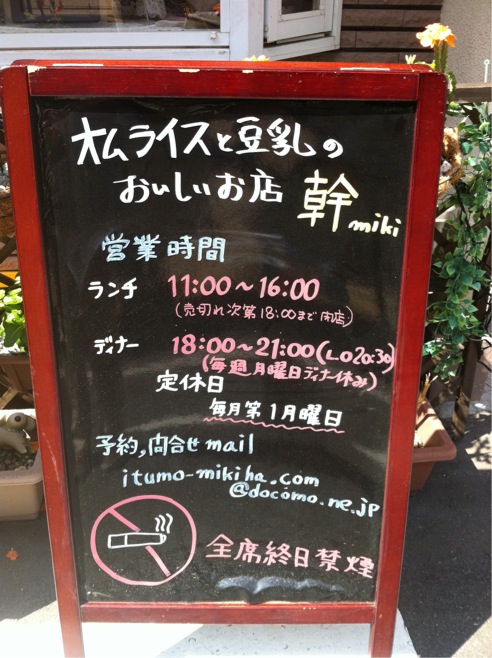 オムライスと豆乳の
おいしいお店 幹 miki
営業時間
ランチ 11:00~16:00
(売切れ次第18:00まで閉店)
ディナー 18:00~21:00(LO20:30)
(毎週月曜日ディナー休み)
定休日
毎月第1月曜日
予約,問合せ mail
itumo-mikiha.com
@docomo.ne.jp
全席終日禁煙